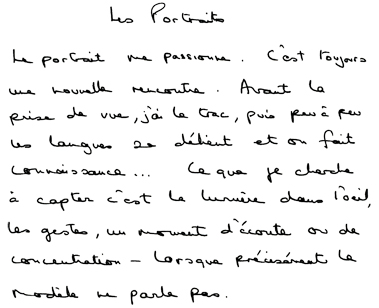 Les Portraits
Le portrait me passionne. C'est toujours
une nouvelle rencontre. Avant la
prise de vue, j'ai le trac, puis peu à peu
les langues se délient et on fait
connaissance... Ce que je cherche
à capter c'est la lumière dans l'oeil,
les gestes, un moment d'écoute ou de
concentration - lorsque précisément le
modèle ne parle pas.